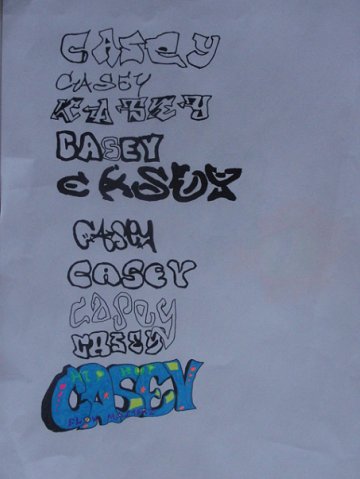 CASEY
CASEY
KASEY
CASEY
CASEY
CASEY
CASEY
CASEY
HIP HOP
CASEY